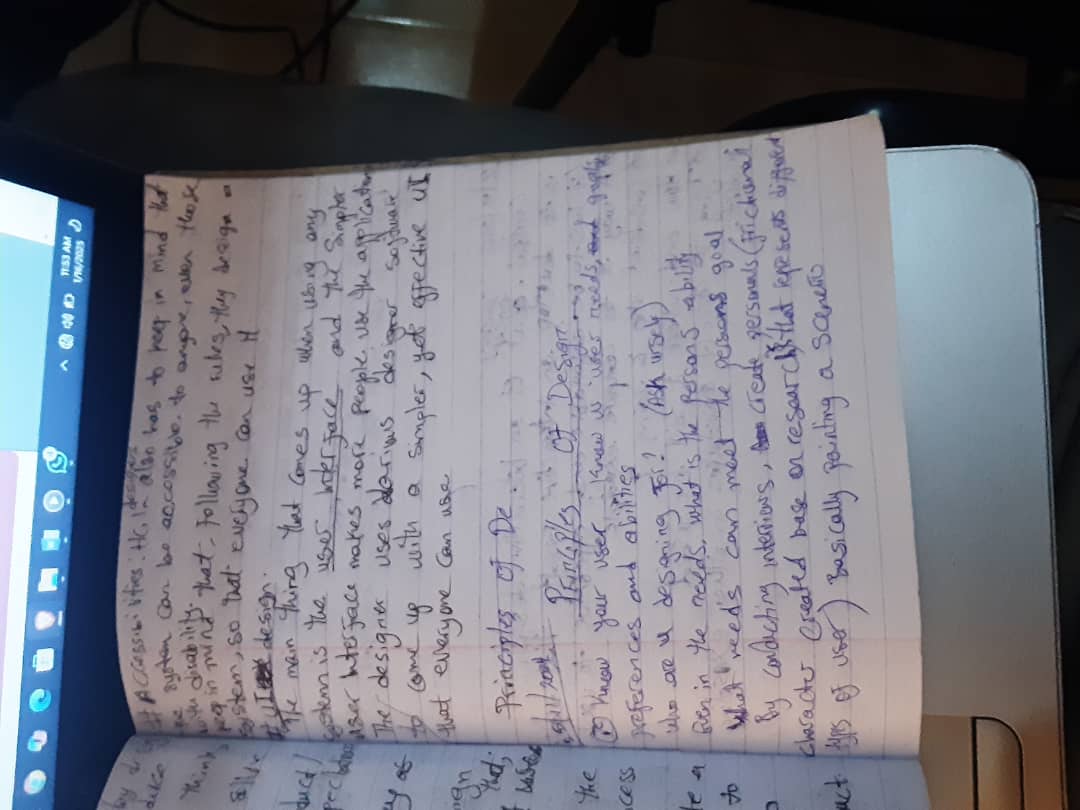 11:53 AM
1/16/2025
# Accessibilities: HCI designers also has to keep in mind that
system can be accessible. to anyone, even those
with disability.
keep in mind that, following the rules, they design a
system, so that everyone can use it
# UI design.
The main thing that comes up when using any
system is the user interface and the simpler
user interface makes more people use the application
The designer uses various designer software
to come up with a simpler, yet effective UI
that everyone can use
Principles of De.
Principles Of Design
Know your user. Know is user needs,
preferences and abilities
who are u designing for? (Ask ursely)
Even in the needs, what is the persons ability
What needs can meet the persons goal
By conducting interviews, Create personals (frictional
character created base on research that represents different
types of user) Basically painting a scenerio
the
cess
te a
to